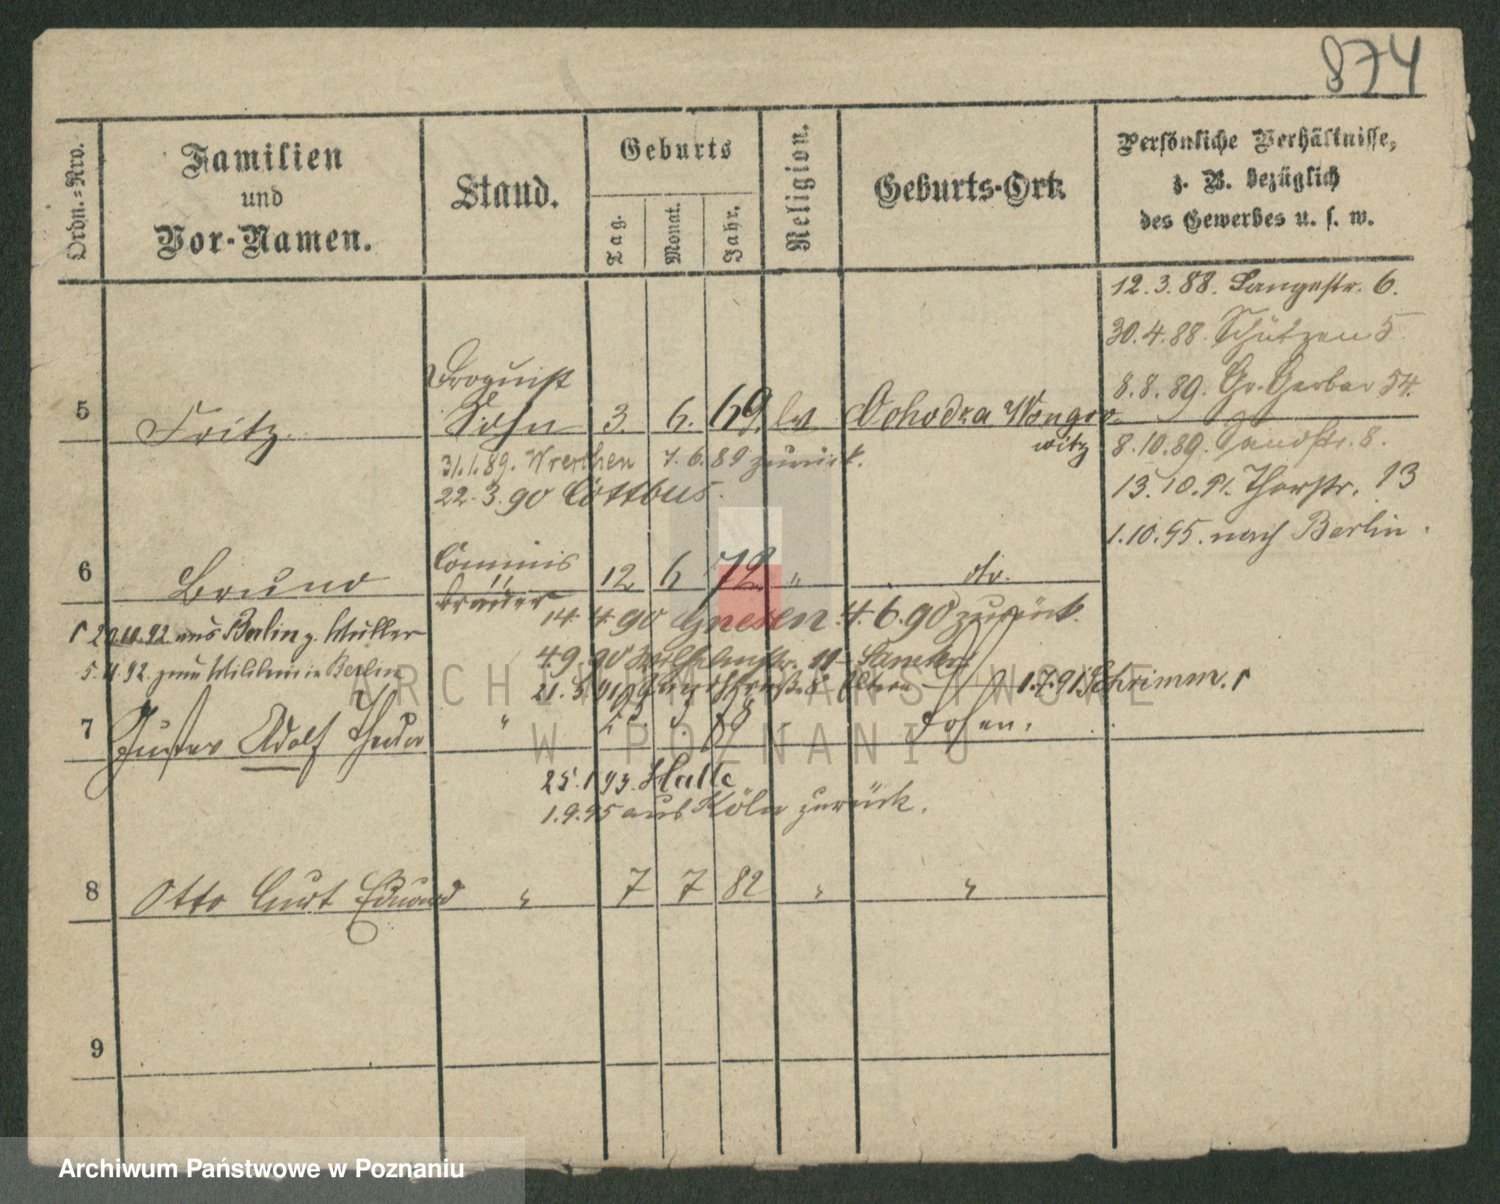 874
Ordn.=Nro.
Familien
und
Vor-Namen.
Stand.
Geburts
Tag.
Monat.
Jahr.
Religion.
Geburts-Ort
Persönliche Verhältnisse,
z. B. bezüglich
des Gewerbes u. s. w.
12.3.88. Langestr. 6.
30.4.88. Schützen 5
8.8.89. Gr. Gerber 54.
5 Fritz. Droguist
Sohn 3. 6. 69. ev Ochodza Wongro-
witz
8.10.89. Sandstr. 8.
31.1.89. Wreschen 7.6.89 zurück.
22.3.90 Cottbus.
13.10.91. Thorstr. 13
1.10.95. nach Berlin.
6 Bruno Commis 12 6 72 " do.
14 4 90 Gnesen. 4.6.90 zurück.
20.10.92 aus Berlin z. Müller
5.11.92. zum Militär in Berlin
4.9.90 11 Samter
21.5.91 Eltern 1.7.91 Schrimm.
7 Gustav Adolf " 78 Posen.
25.1.93. Halle
1.9.95 aus Köln zurück.
8 Otto Curt Eduard " 7 7 82 " "
9
ARCHIWUM PAŃSTWOWE
W POZNANIU
Archiwum Państwowe w Poznaniu